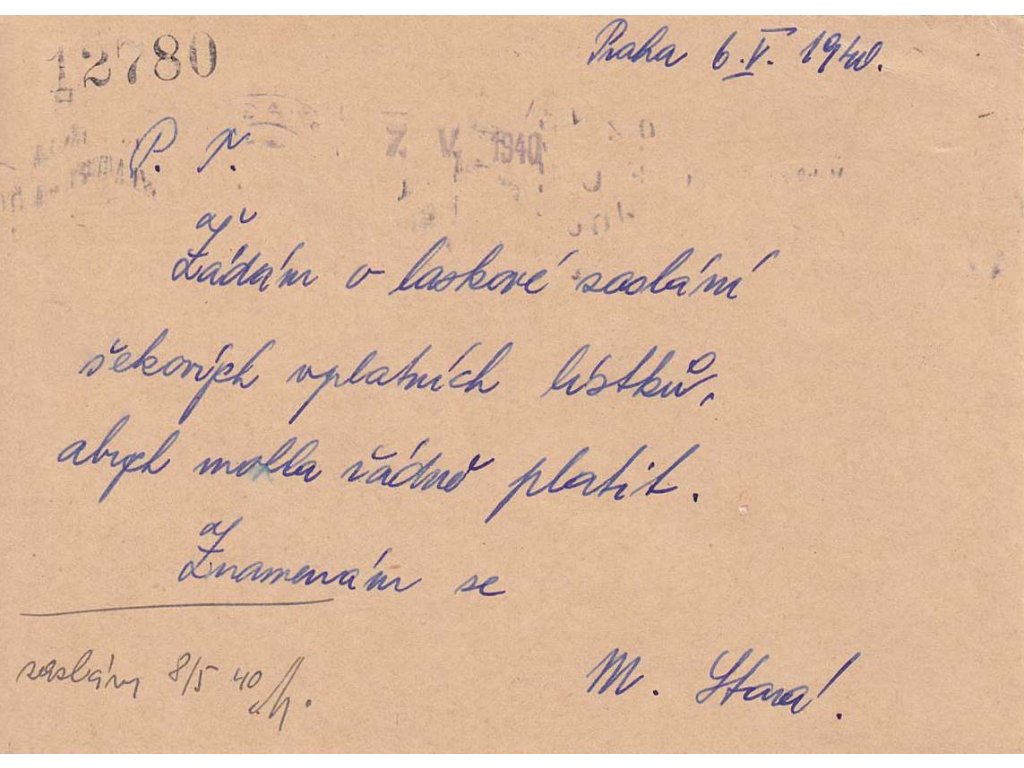 12780
Praha 6.V. 1940.
P. T.
7. V. 1940
Žádám o laskavé zaslání
šekových vplatních lístků,
abych mohla řádně platit.
Znamenám se
zaslány 8/5 40
M. Stará.